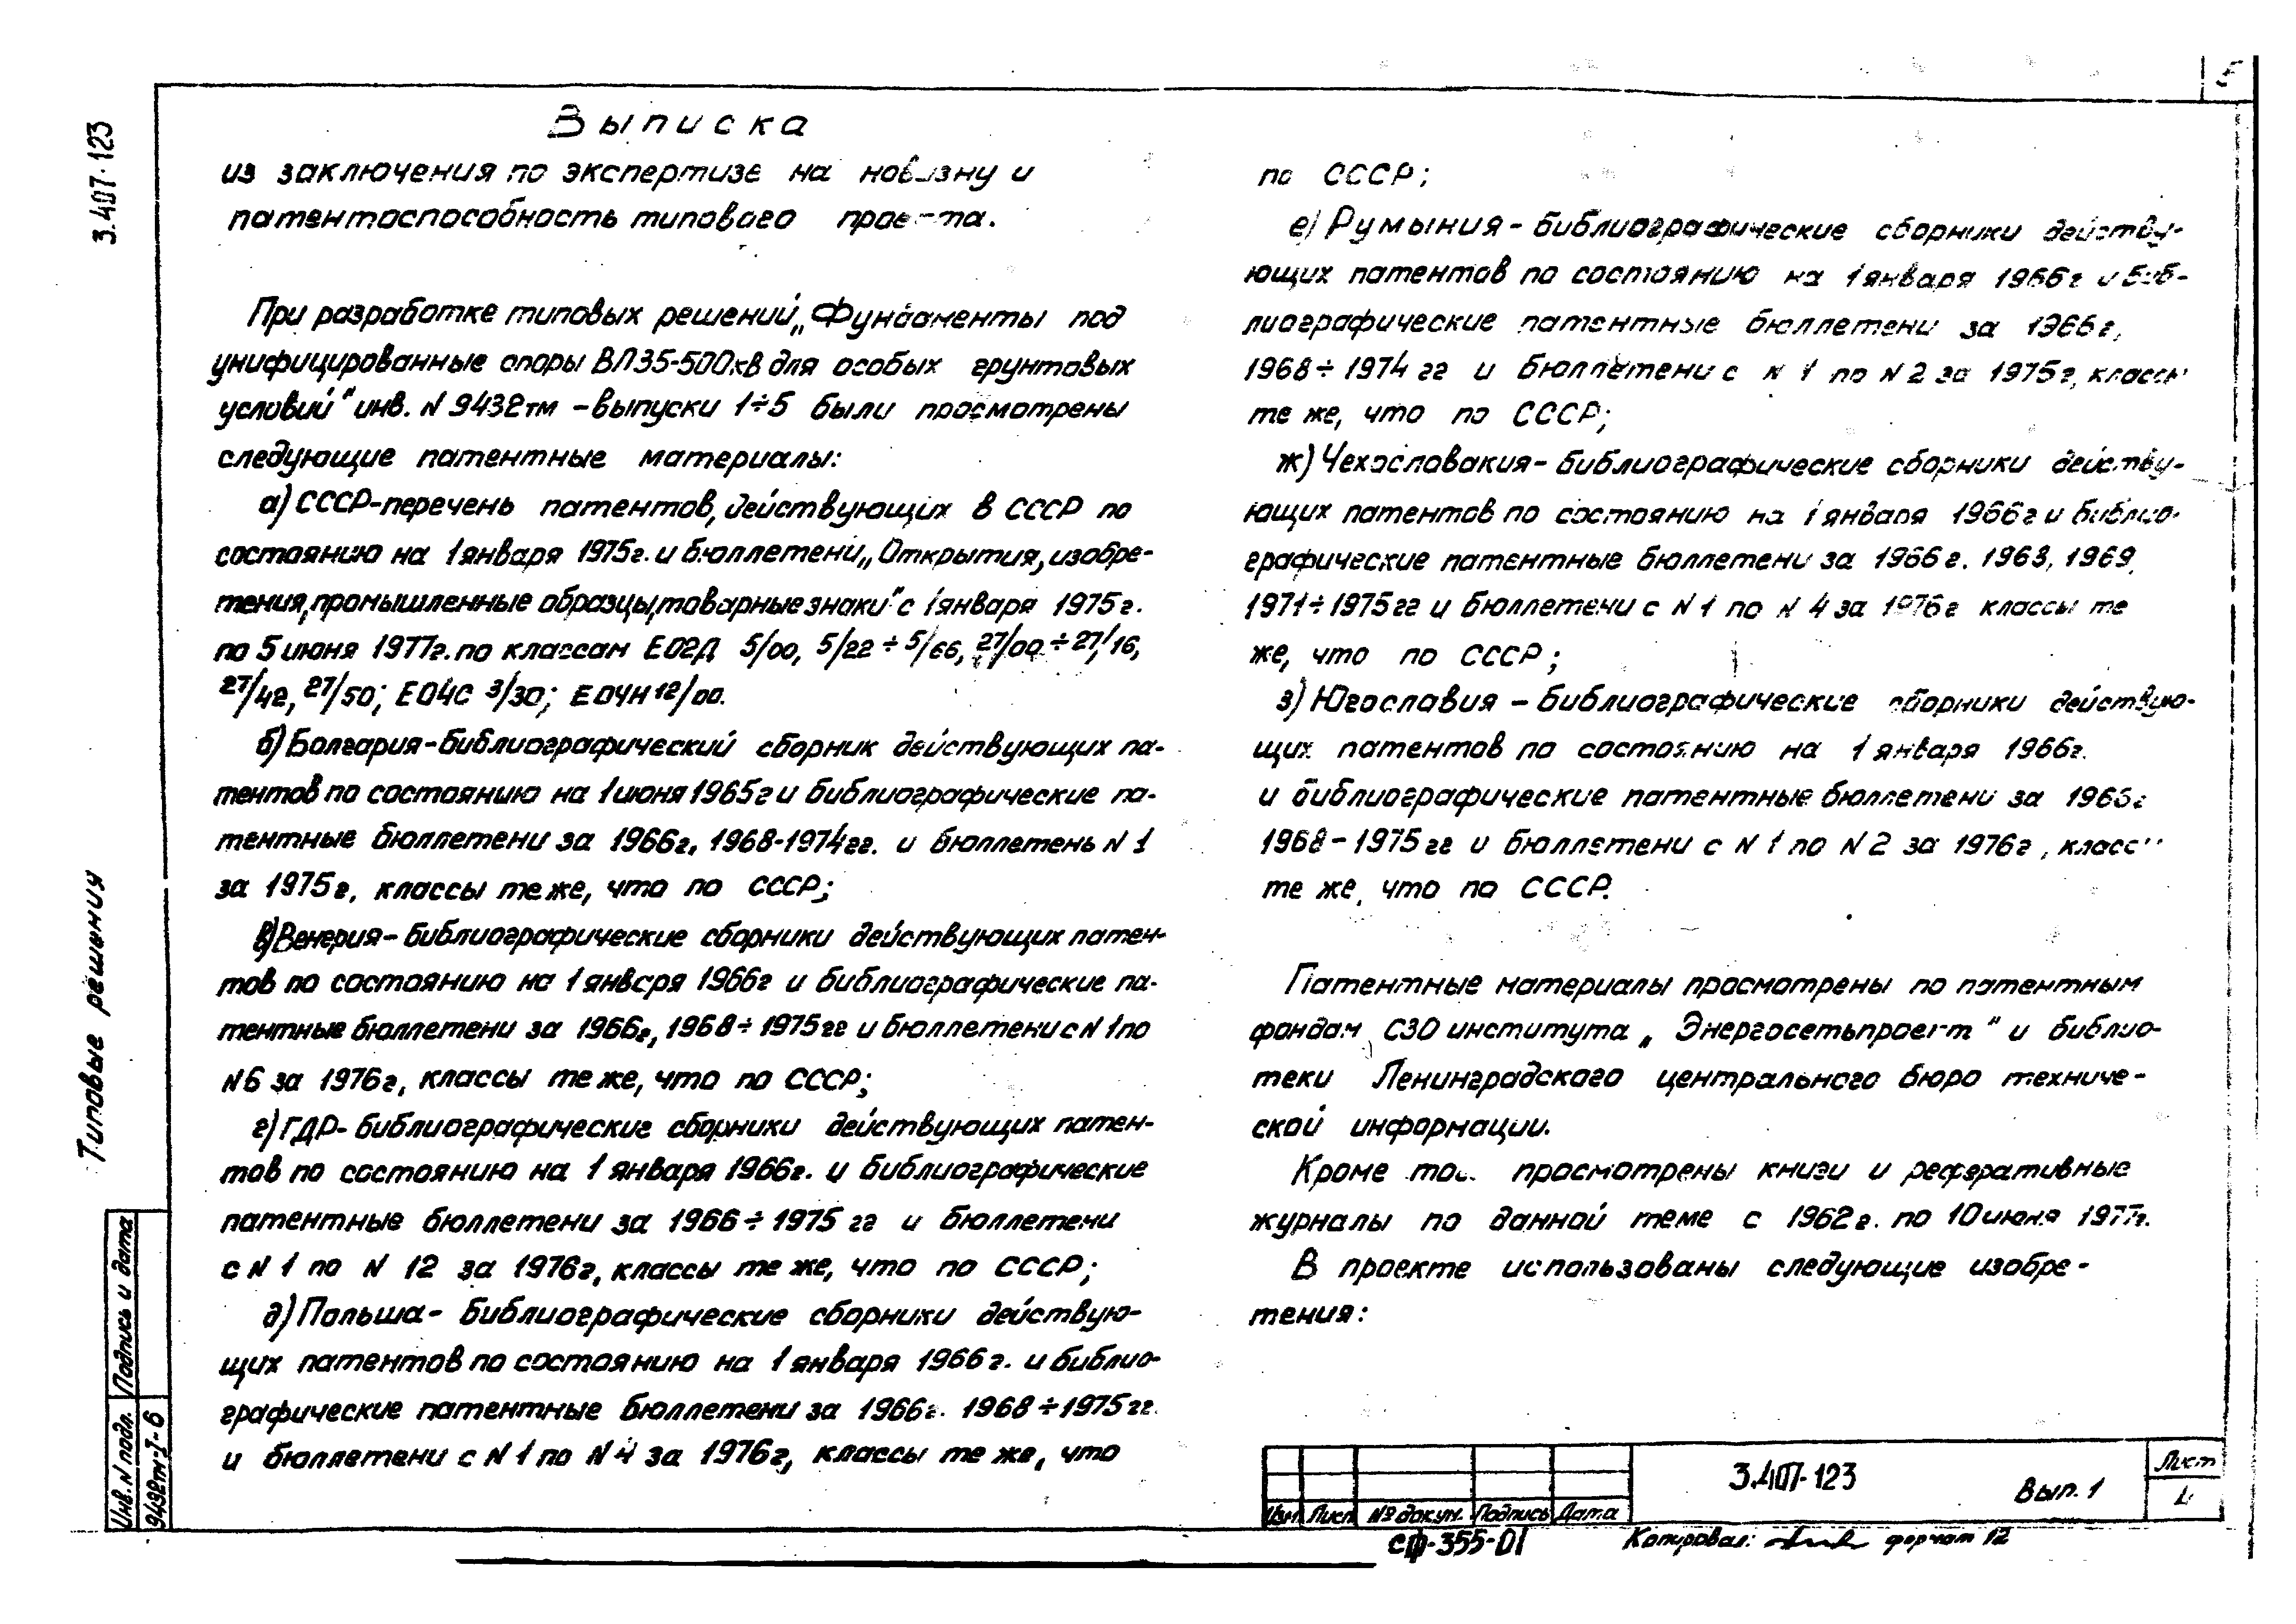 3.407-123
Типовые решения
Выписка
из заключения по экспертизе на новизну и
патентоспособность типового проекта.
При разработке типовых решений „Фундаменты под
унифицированные опоры ВЛ35-500кв для особых грунтовых
условий" инв. N 9432тм - выпуски 1÷5 были просмотрены
следующие патентные материалы:
а) СССР-перечень патентов, действующих в СССР по
состоянию на 1 января 1975г. и бюллетени „Открытия, изобре-
тения, промышленные образцы, товарные знаки" с 1 января 1975г.
по 5 июня 1977г. по классам Е02Д 5/00, 5/22 ÷ 5/66, 27/00 ÷ 27/16,
27/42, 27/50; Е04С 3/30; Е04Н 12/00.
б) Болгария - библиографический сборник действующих па-
тентов по состоянию на 1 июня 1965г и библиографические па-
тентные бюллетени за 1966г, 1968-1974гг. и бюллетень N 1
за 1975г, классы те же, что по СССР;
в) Венгрия - библиографические сборники действующих патен-
тов по состоянию на 1 января 1966г и библиографические па-
тентные бюллетени за 1966г, 1968÷1975гг и бюллетени с N 1 по
N6 за 1976г, классы те же, что по СССР;
г) ГДР- библиографические сборники действующих патен-
тов по состоянию на 1 января 1966г. и библиографические
патентные бюллетени за 1966÷1975 гг и бюллетени
с N 1 по N 12 за 1976г, классы те же, что по СССР;
д) Польша - библиографические сборники действую-
щих патентов по состоянию на 1 января 1966г. и библио-
графические патентные бюллетени за 1966г. 1968÷1975гг.
и бюллетени с N 1 по N 4 за 1976г, классы те же, что
по СССР;
е) Румыния - библиографические сборники действу-
ющих патентов по состоянию на 1 января 1966г и биб-
лиографические патентные бюллетени за 1966г,
1968÷1974 гг и бюллетени с N 1 по N 2 за 1975г, классы
те же, что по СССР;
ж) Чехословакия - библиографические сборники действу-
ющих патентов по состоянию на 1 января 1966г и библио-
графические патентные бюллетени за 1966г. 1968, 1969,
1971÷1975гг и бюллетени с N 1 по N 4 за 1976г классы те
же, что по СССР;
з) Югославия - библиографические сборники действую-
щих патентов по состоянию на 1 января 1966г.
и библиографические патентные бюллетени за 1966г
1968-1975гг и бюллетени с N 1 по N 2 за 1976г, классы
те же, что по СССР.
Патентные материалы просмотрены по патентным
фондам СЗО института „Энергосетьпроект" и библио-
теки Ленинградского центрального бюро техниче-
ской информации.
Кроме того просмотрены книги и реферативные
журналы по данной теме с 1962г. по 10 июня 1977г.
В проекте использованы следующие изобре-
тения:
Инв. N подл. Подпись и дата
9432тм-I-6
Изм Лист № докум. Подпись Дата
3.407-123
Вып. 1
Лист
сф-355-01
Копировал: формат 12